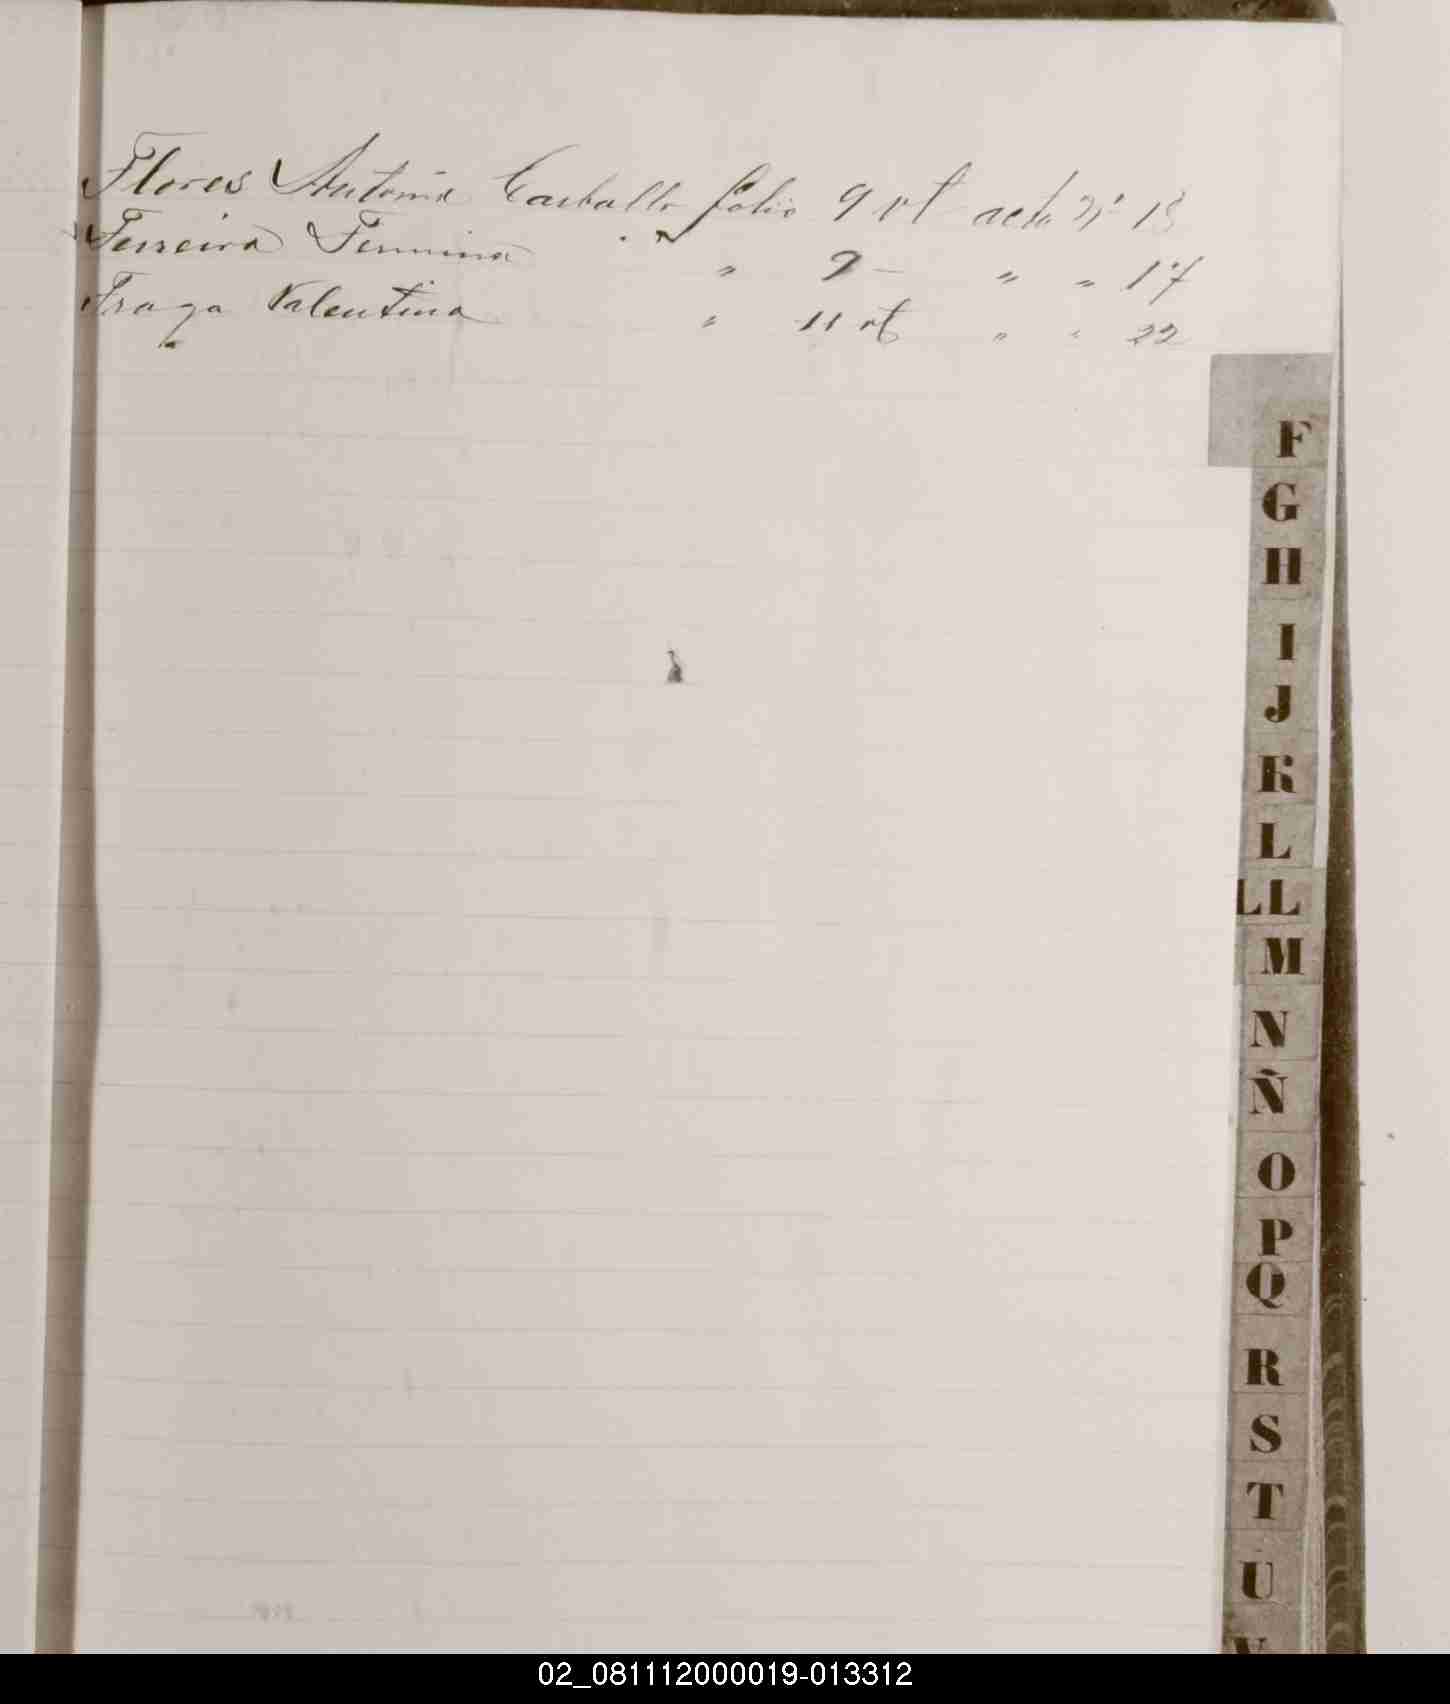 Flores Antonia Carballo folio 9 vt acta Nº 13
Ferreira Fermina " 9 — " " 17
Fraga Valentina " 11 vt " " 22
F
G
H
I
J
K
L
LL
M
N
Ñ
O
P
Q
R
S
T
U
V
02_081112000019-013312